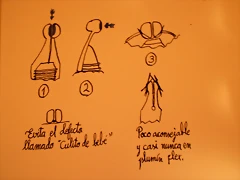 1
2
3
"Evita el defecto
llamado "Culito de bebé"
Poco aconsejable
y casi nunca en
plumín flex.